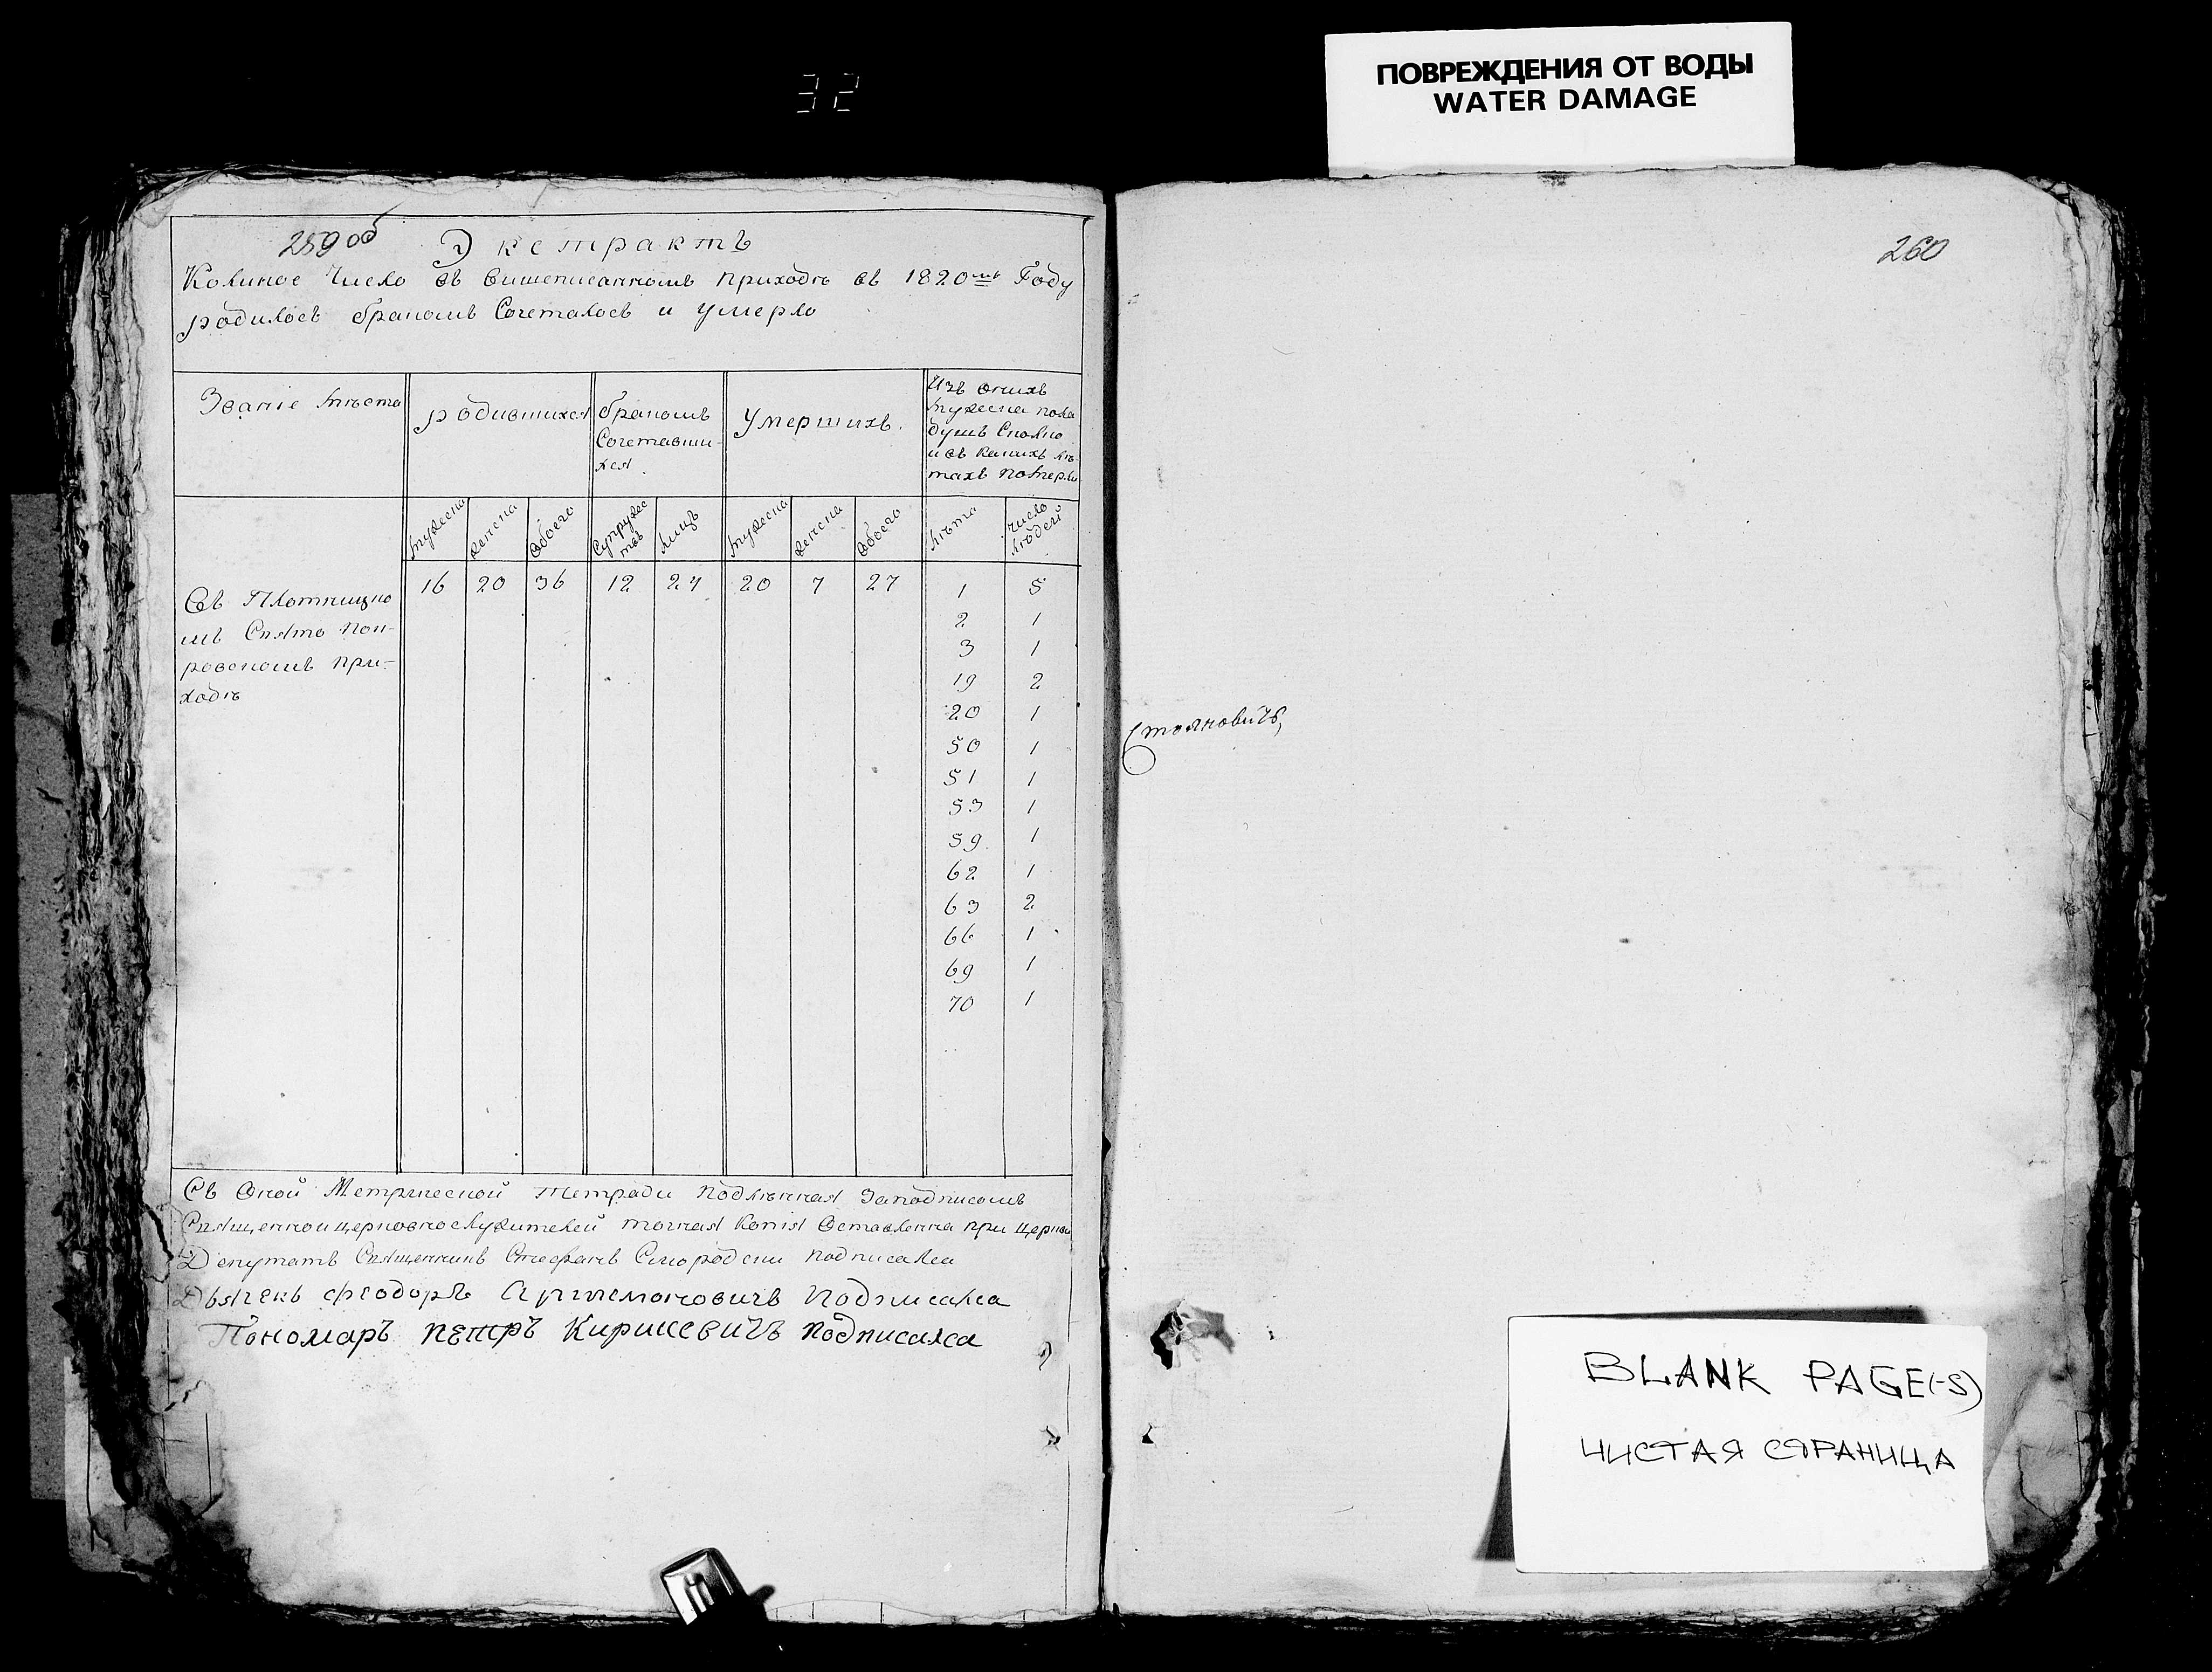 32
ПОВРЕЖДЕНИЯ ОТ ВОДЫ
WATER DAMAGE
259 об Экстрактъ
Коликое Число въ вишеписанномъ приходѣ въ 1820мъ Году
родилось бракомъ Сочеталось и умерло
Званіе мѣста
родившихся
бракомъ
Сочетавши-
хся
умершихъ.
Изъ онихъ
мужеска пола
душъ Сколко
и въ какихъ лѣ-
тахъ померли
мужеска женска обоего супружес тво лицъ мужеска женска обоего лѣта число людей
Въ Плотницко
мъ Свято Пок-
ровскомъ при-
ходѣ
16 20 36 12 24 20 7 27
1 5
2 1
3 1
19 2
20 1
50 1
51 1
53 1
59 1
62 1
63 2
66 1
69 1
70 1
Съ Оной Метрической тетради подлѣнная Заподписомъ
Священноицерковнослужителей точная Копія Оставленна при Церкви
Депутатъ Священникъ Стефанъ подписался
Дьячекъ Феодоръ Артемоновичъ подписался
Пономаръ пѣтръ Кирикевичъ подписался
260
Стояновичъ,
BLANK PAGE(-S)
ЧИСТАЯ СТРАНИЦА